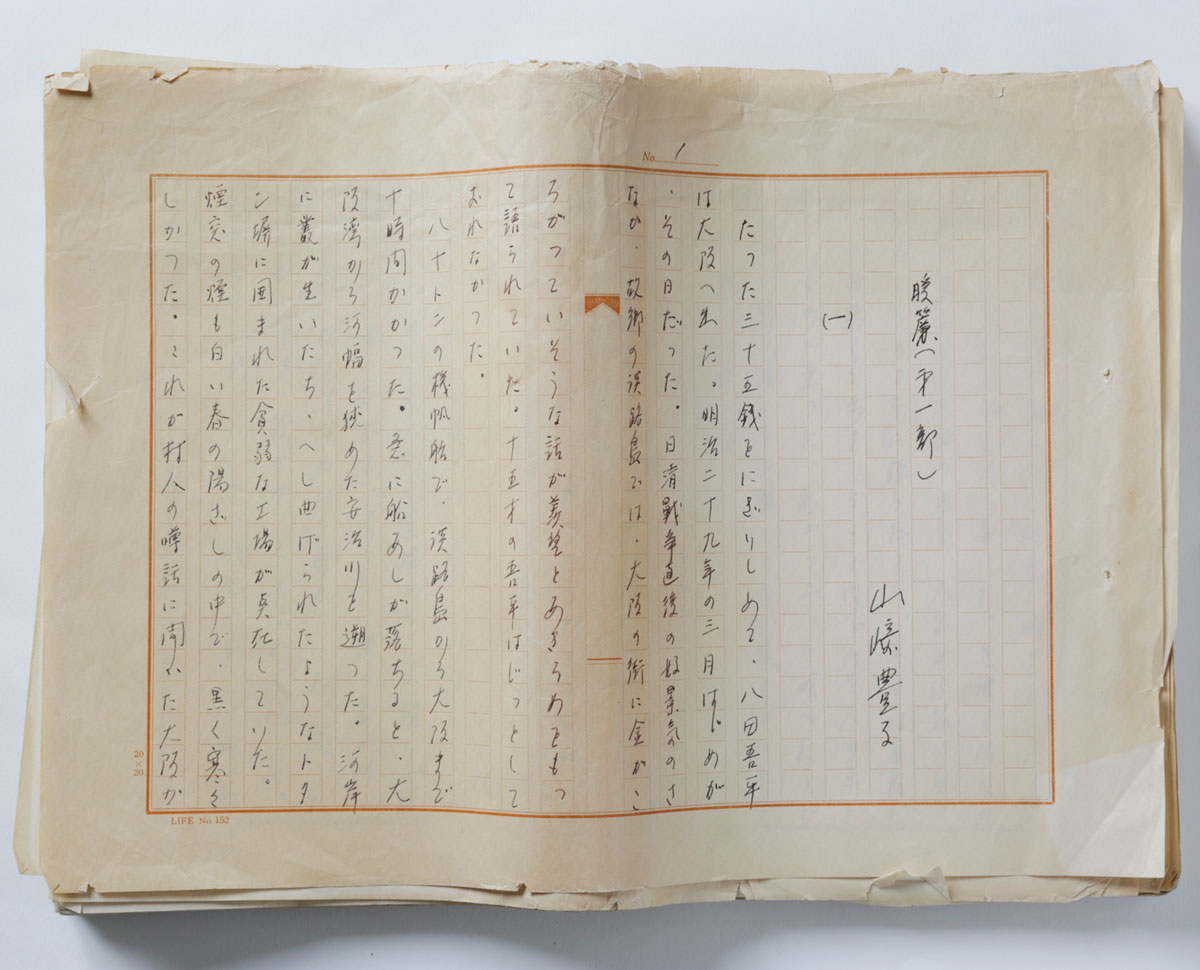 No. 1
暖簾(第一部)
山崎豊子
(一)
たった三十五銭をにぎりしめて、八田吾平
は大阪へ出た。明治二十九年の三月はじめが
、その日だった。日清戦争直後の好景気のさ
なか、故郷の淡路島では、大阪の街に金がこ
ろがっていそうな話が羨望とあきらめをもっ
て語られていた。十五才の吾平はじっとして
おれなかった。
八十トンの機帆船で、淡路島から大阪まで
十時間かかった。急に船あしが落ちると、大
阪湾から河幅を狭めた安治川を遡った。河岸
に叢が生いたち、へし曲げられたようなトタ
ン塀に囲まれた貧弱な工場が点在していた。
煙突の煙も白い春の陽ざしの中で、黒く寒々
しかった。これが村人の噂話に聞いた大阪か
20×20
LIFE No. 152